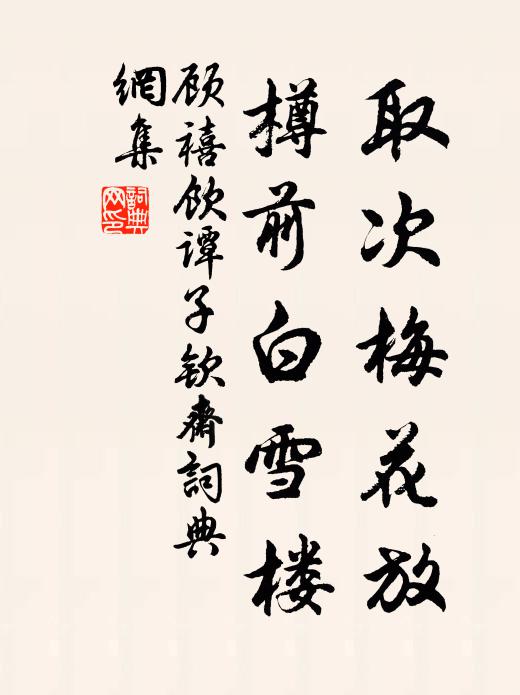 取次梅花放
樽前白雪楼
顾禧饮谭子钦斋詞典
網集
詞典網印